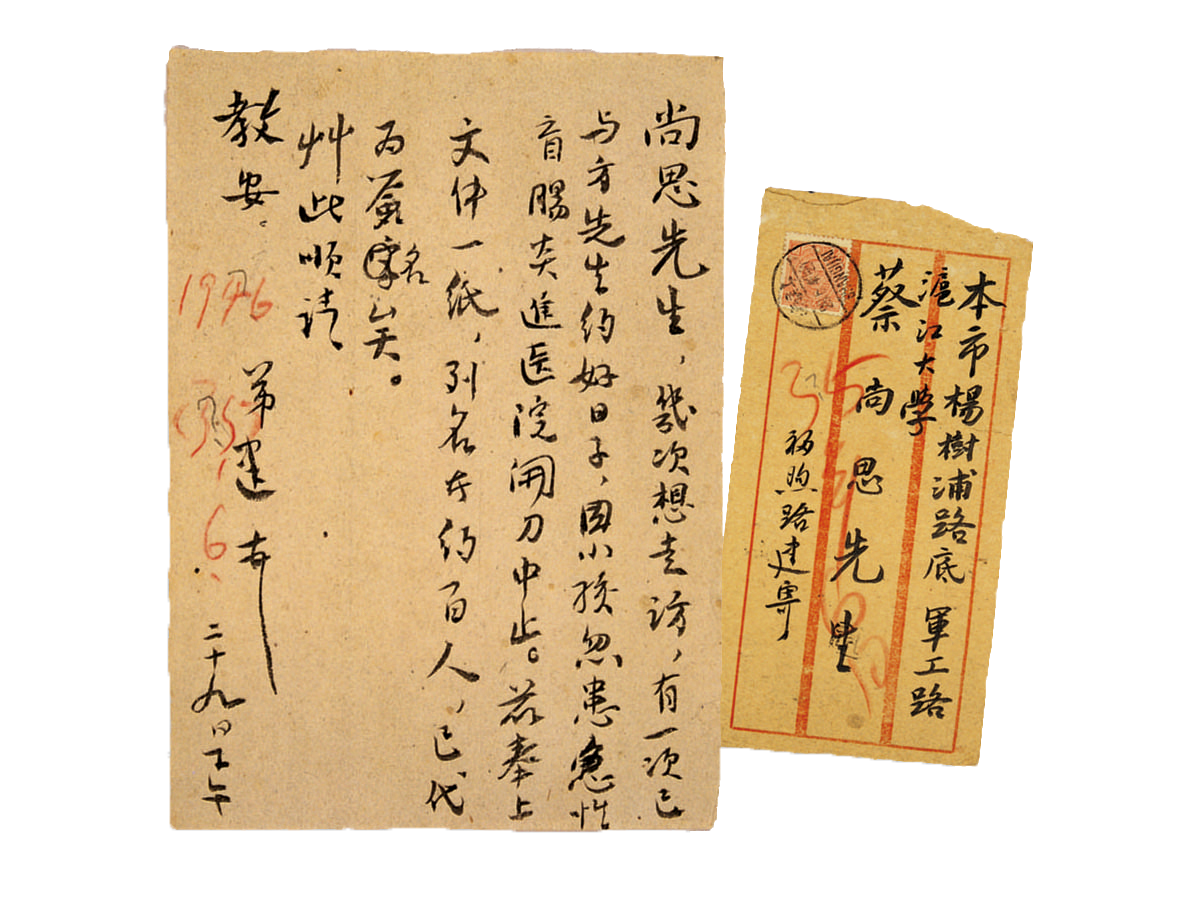 尚思先生，幾次想走访，有一次已
与方先生约好日子，因小孩忽患急性
盲腸炎進医院開刀中止。兹奉上
文件一纸，列名者约百人，已代
为簽名矣。
艸此順請
教安。
弟建
二十九日下午
1946
6
本市楊樹浦路底軍工路
滬江大學
蔡尚思先生
福煦路建寄